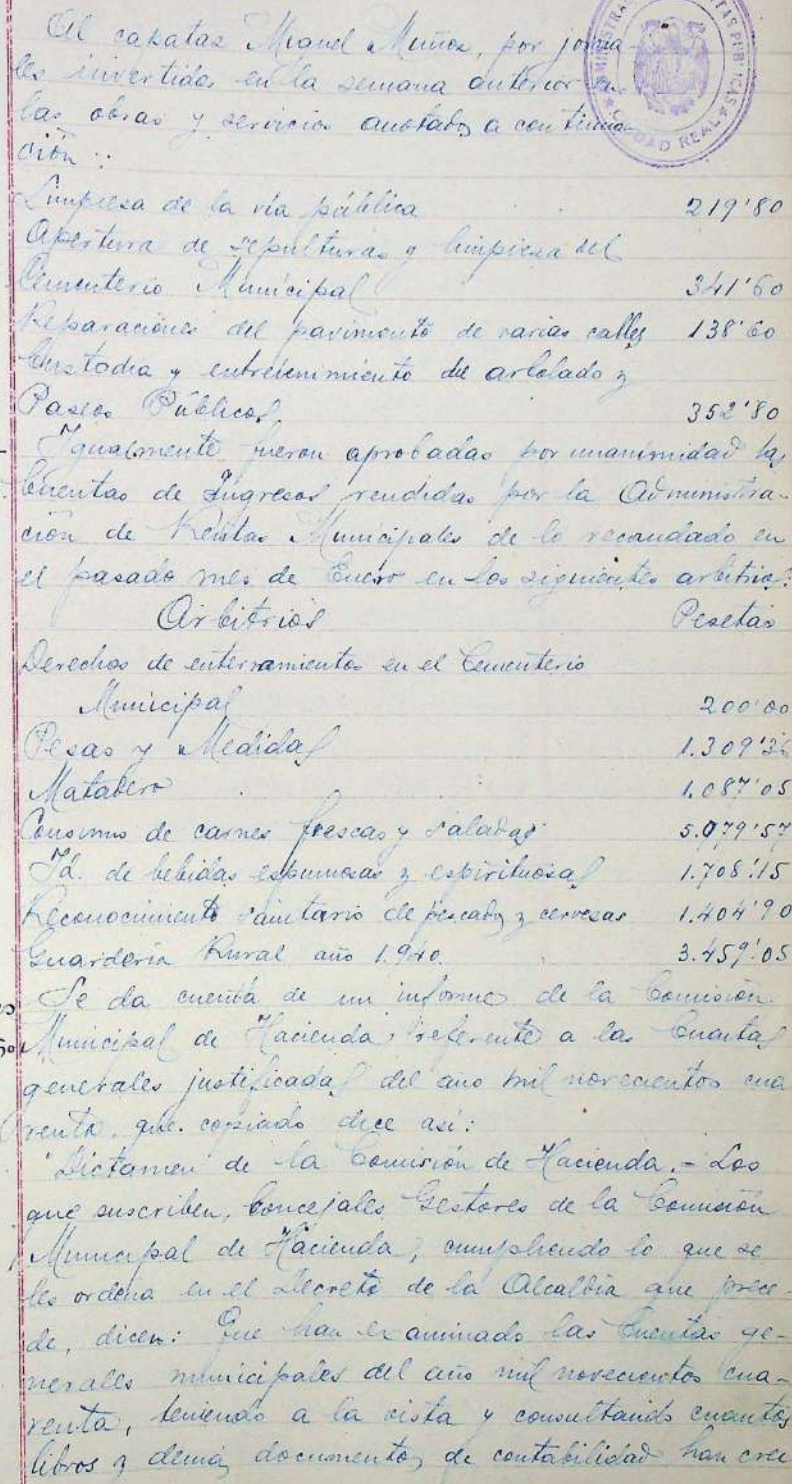 Al capataz Miguel Muñoz, por jorna-
les invertidos en la semana anterior en
las obras y servicios anotados a continua-
ción:
CIUDAD REAL
Limpieza de la vía pública 219'80
Apertura de sepulturas y limpieza del
Cementerio Municipal 341'60
Reparaciones del pavimento de varias calles 138'60
Custodia y entretenimiento del arbolado y
Paseos Públicos 352'80
Igualmente fueron aprobadas por unanimidad las
Cuentas de Ingresos rendidas por la Administra-
ción de Rentas Municipales de lo recaudado en
el pasado mes de Enero en los siguientes arbitrios:
Arbitrios Pesetas
Derechos de enterramientos en el Cementerio
Municipal 200'00
Pesas y Medidas 1.309'36
Matadero 1.087'05
Consumo de carnes frescas y saladas 5.079'57
Id. de bebidas espumosas y espirituosas 1.708'15
Reconocimiento sanitario de pescados y cervezas 1.404'90
Guardería Rural año 1.940. 3.459'05
Se da cuenta de un informe de la Comisión
Municipal de Hacienda, referente a las Cuentas
generales justificadas del año mil novecientos cua
renta, que copiado dice así:
"Dictamen de la Comisión de Hacienda.- Los
que suscriben, Concejales Gestores de la Comisión
Municipal de Hacienda, cumpliendo lo que se
les ordena en el Decreto de la Alcaldía que prece-
de, dicen: Que han examinado las Cuentas ge-
nerales municipales del año mil novecientos cua-
renta, teniendo a la vista y consultando cuantos
libros y demás documentos de contabilidad han creí